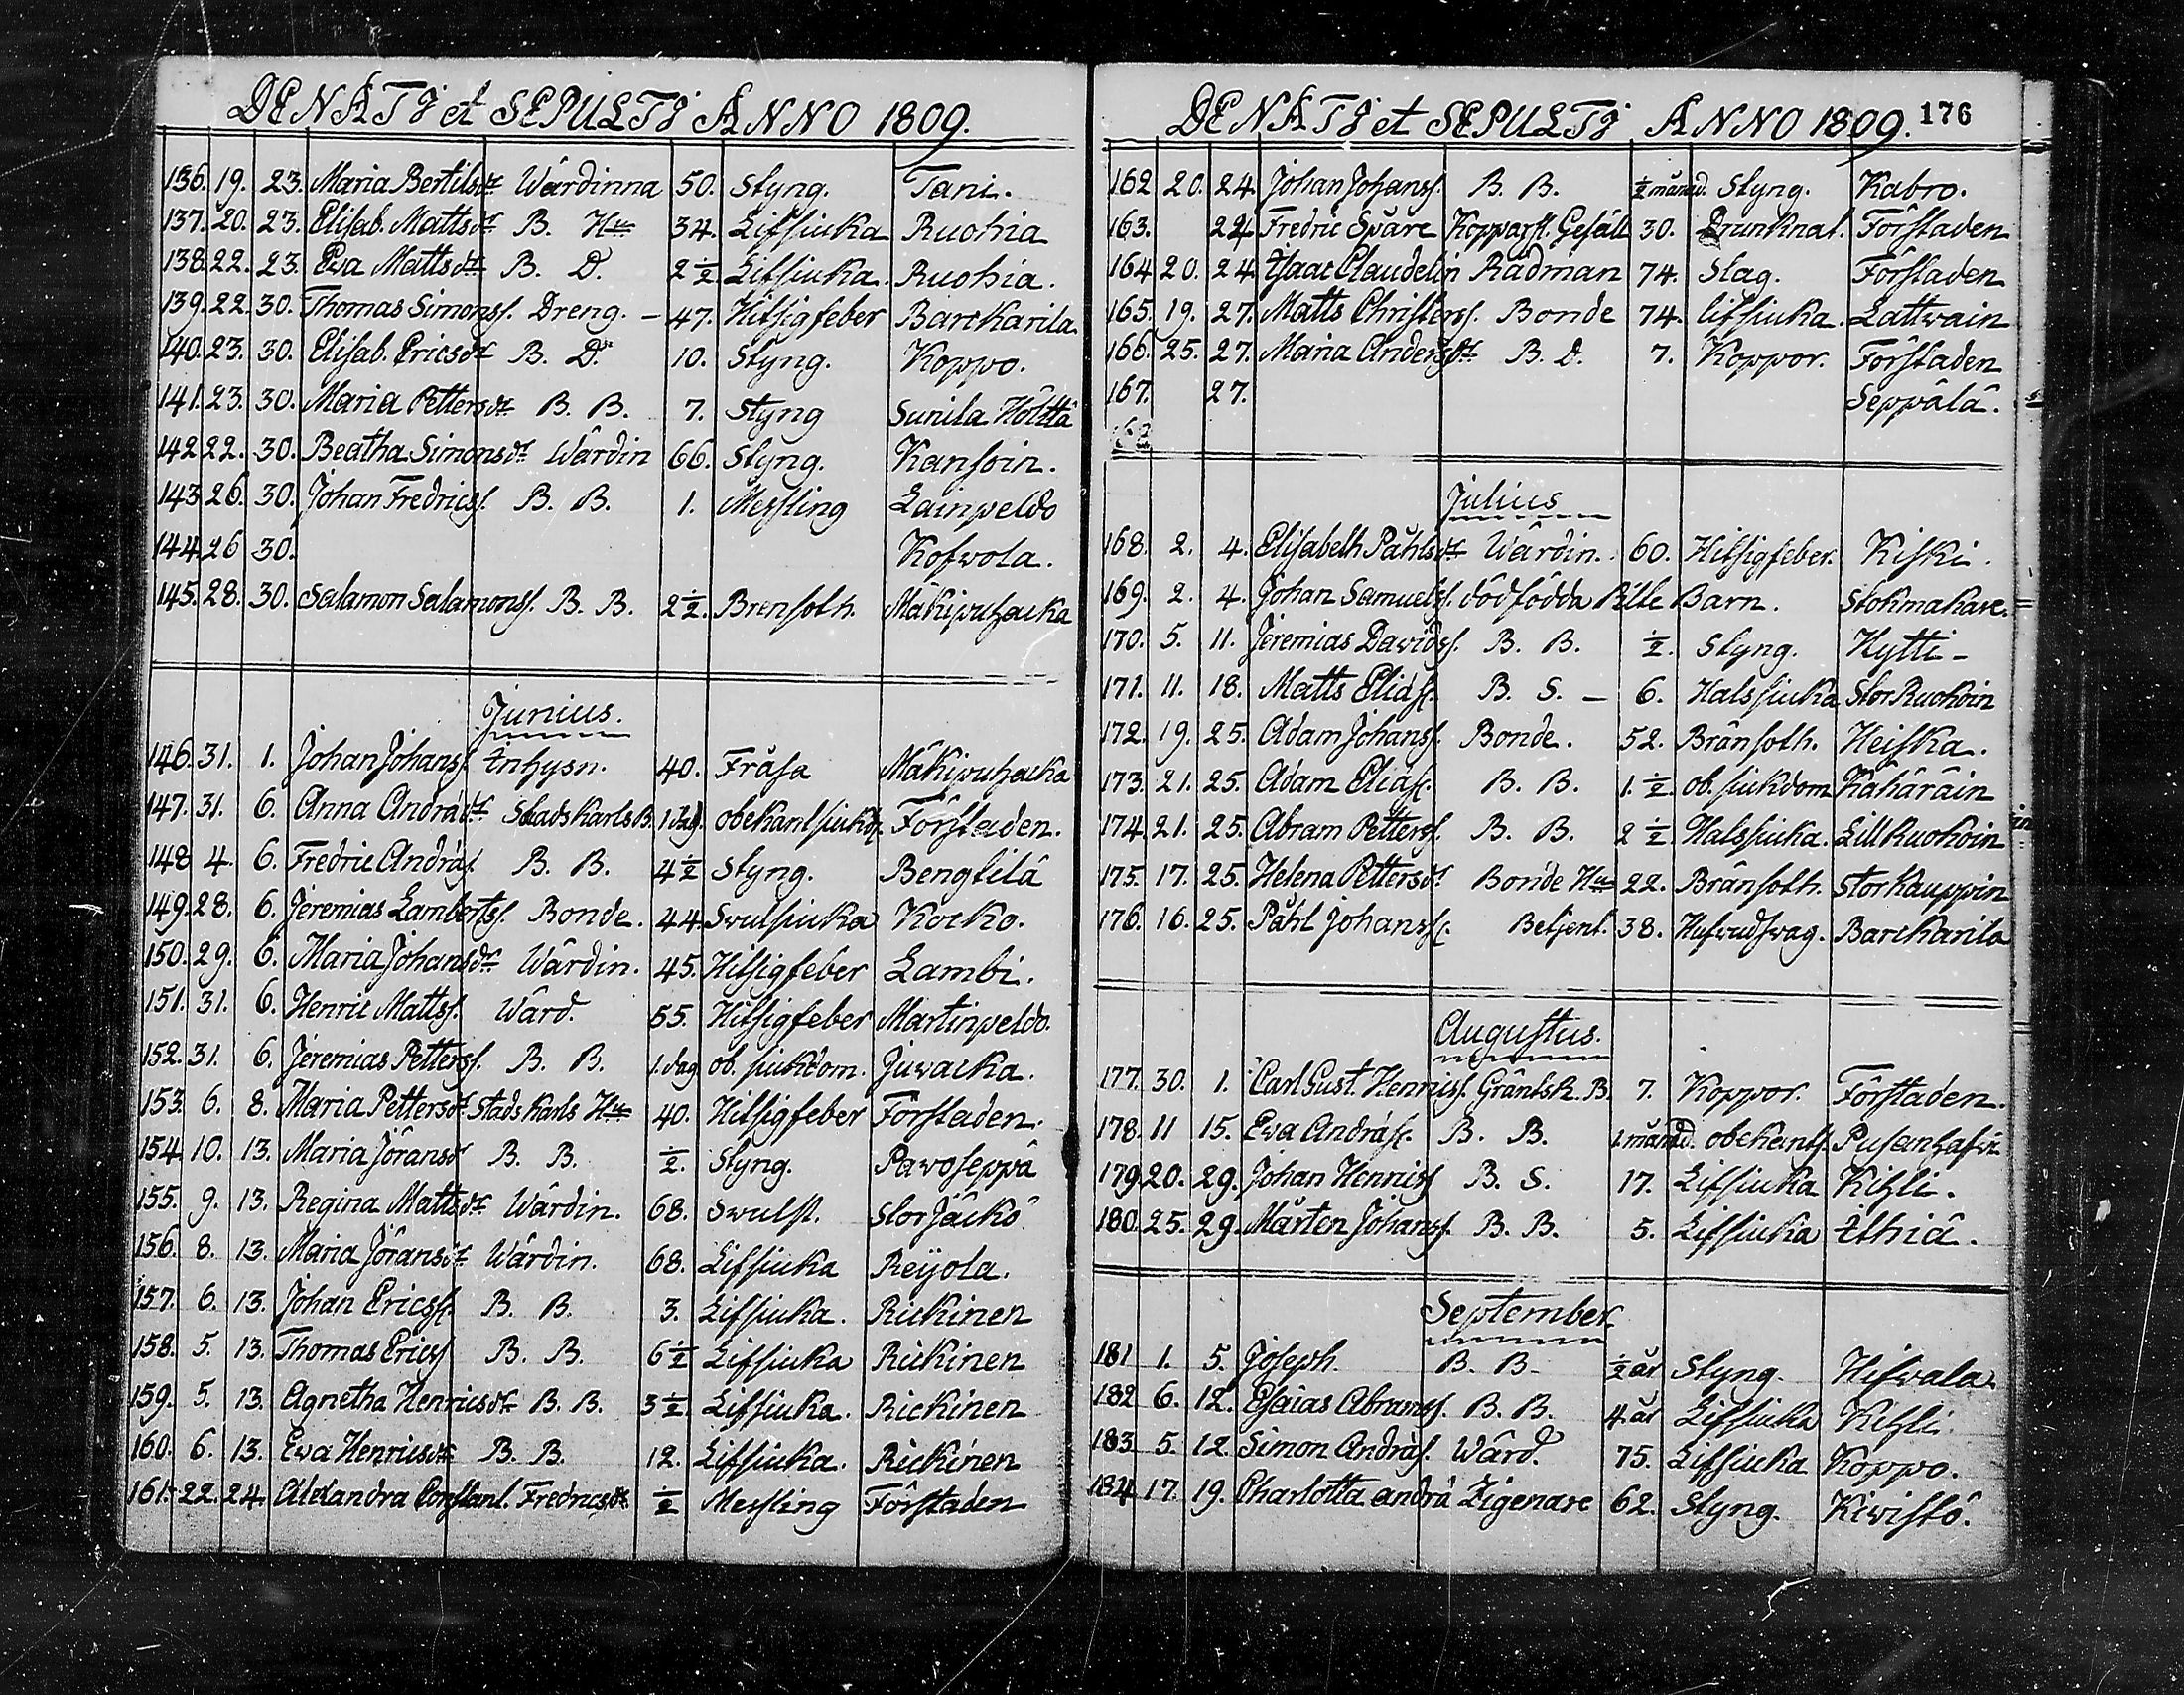 DENATI et SEPULTI ANNO 1809.
136. 19. 23. Maria Bertilsdr Wärdinna 50. Styng. Tani.
137. 20. 23. Elisab. Mattsdr B. Hu 34. Lifsiuka Ruohia
138. 22. 23. Eva Mattsdr B. D. 2 1/2 Lifsiuka. Ruohia.
139. 22. 30. Thomas Simonss. Dreng. - 47. Hitsigfeber Barckarila.
140. 23. 30. Elisab. Ericsdr B. D. 10. Styng. Koppo.
141. 23. 30. Maria Pettersdr B. B. 7. Styng Sunila Hölttä
142 22. 30. Beatha Simonsdr Wärdin 66. Styng. Kansoin.
143 26. 30. Johan Fredricss. B. B. 1. Messling Lainpeldo
144. 26 30. Kofwola.
145. 28. 30. Salamon Salamonss. B. B. 2 1/2. Brensoth. Mäkipuhacka
Junius.
146. 31. 1. Johan Johanss. Inhysn. 40. Fråsa Mäkipuhacka
147. 31. 6. Anna Andrädr Stadskarls B. 1 dag. obekant siukd. Förstaden.
148 4. 6. Fredric Andräs. B. B. 4 1/2 Styng. Bengtilä
149. 28. 6. Jeremias Lambertss. Bonde. 44. Swulsiuka Kocko.
150. 29. 6. Maria Johansdr Wärdin. 45. Hitsigfeber Lambi.
151. 31. 6. Henric Mattss. Wärd. 55. Hitsigfeber Martinpeldo.
152. 31. 6. Jeremias Petterss. B. B. 1. dag ob. siukdom. Juvacka.
153. 6. 8. Maria Pettersdr Stads Karls Hu 40. Hitsigfeber Förstaden.
154. 10. 13. Maria Jöransd B. B. 1/2. Styng. Pavoseppä
155. 9. 13. Regina Mattsdr Wärdin. 68. Swulst. Stor Jäckö
156. 8. 13. Maria Jöransdr Wärdin. 68. Lifsiuka Reijola.
157. 6. 13. Johan Ericss. B. B. 3. Lifsiuka. Rickinen
158. 5. 13. Thomas Ericss B. B. 6 1/2 Lifsiuka Rickinen
159. 5. 13. Agnetha Henricsdr B. B. 3 1/2. Lifsiuka. Rickinen
160. 6. 13. Eva Henricsdr B. B. 12. Lifsiuka. Rickinen
161. 22. 24. Alexandra Constant. Fredricsdr 1/2 Messling Förstaden
DENATI et SEPULTI ANNO 1809. 176
162 20. 24. Johan Johanss. B. B. 1/2 månad. Styng. Kabro.
163. 24. Fredric Spåre Kopparsl. Gesäll 30. Drunknat. Förstaden
164 20. 24. Isaac Claudelin Rådman 74. Slag. Förstaden
165. 19. 27. Matts Christerss. Bonde 74. lifsiuka. Lattwain
166. 25. 27. Maria Andersdr B. D. 7. Koppor. Förstaden
167. 27. Seppälä.
168
Julius
168. 2. 4. Elisabeth Påhlsdr Wärdin. 60. Hitsigfeber. Kiski.
169. 2. 4. Johan Samuelss. dödfödda Pilte Barn. Stokmakare.
170. 5. 11. Jeremias Davidss. B. B. 1/2. Styng. Hytti -
171. 11. 18. Matts Eliäs. B. S. - 6. Halssiuka Stor Ruokoin
172. 19. 25. Adam Johanss. Bonde. 52. Bränsoth. Heiska.
173. 21. 25. Adam Eliäs. B. B. 1. 1/2. ob. siukdom Kähäräin
174. 21. 25. Abram Petterss. B. B. 2 1/2. Halssiuka. Lill Ruokoin
175. 17. 25. Helena Pettersdr Bonde Hu 22. Bränsoth. Stor Kauppin
176. 16. 25. Påhl Johanss. Betjent. 38. Hufvudswag. Barckarila
Augustus.
177. 30. 1. Carl Gust. Henriss. Gräntsk. B. 7. Koppor. Förstaden.
178. 11 15. Eva Andräs. B. B. 1. månad. obekant s.
179 20. 29. Johan Henriss B. S. 17. Lifsiuka Kihli.
180. 25. 29. Mårten Johanss. B. B. 5. Lifsiuka Ithiä.
September
181 1. 5. Joseph. B. B. 1/2 år Styng. Hifvala
182 6. 12. Esaias Abramss. B. B. 4. år Lifsiuka Kihli.
183 5. 12. Simon Andräs. Wärd. 75. Lifsiuka Koppo.
184 17. 19. Charlotta andrä Zigenare 62. Styng. Kivistö.